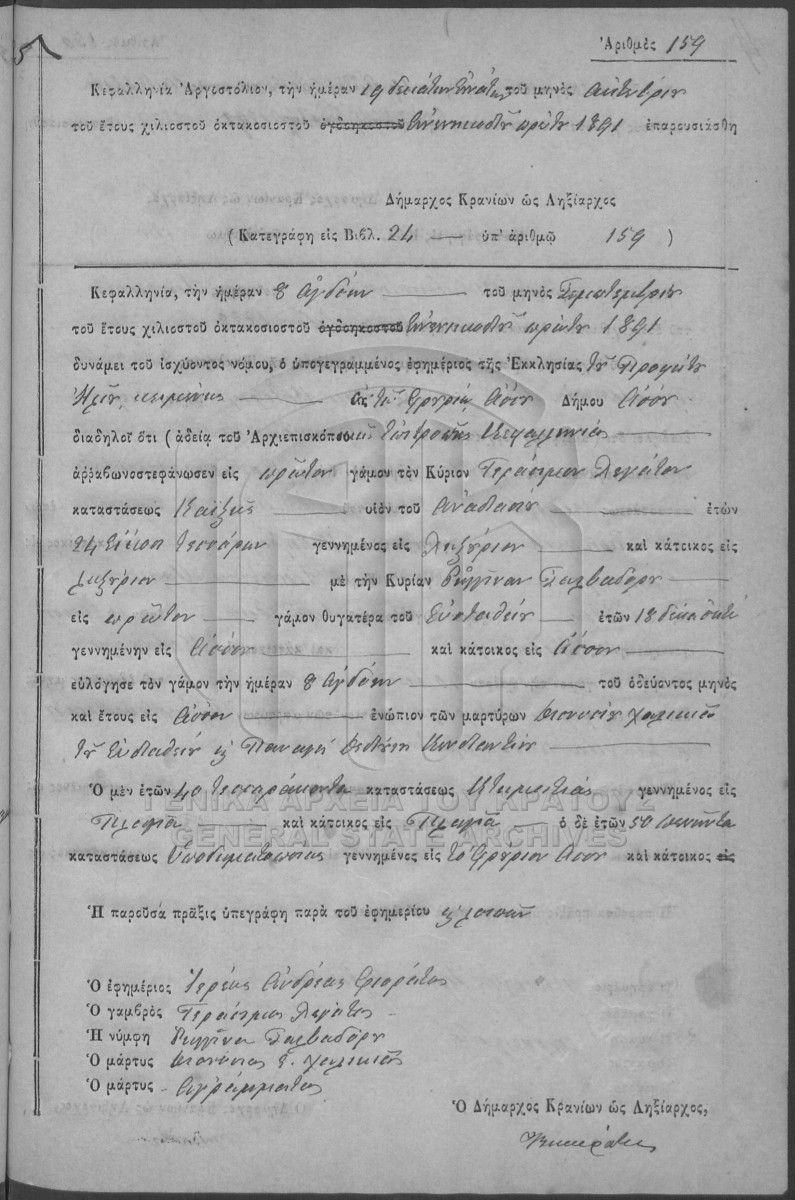 Ἀριθμὸς 159
Κεφαλληνία Ἀργοστόλιον, τὴν ἡμέραν 19 δεκάτην ἐνάτην τοῦ μηνὸς
τοῦ ἔτους χιλιοστοῦ ὀκτακοσιοστοῦ ὀγδοηκοστοῦ ἐννενηκοστοῦ πρώτου 1891 ἐπαρουσιάσθη
Δήμαρχος Κρανίων ὡς Ληξίαρχος
(Κατεγράφη εἰς Βιβλ. 24 — ὑπ' ἀριθμῷ 159)
Κεφαλληνία, τὴν ἡμέραν 8 ὀγδόην — τοῦ μηνὸς Σεπτεμβρίου
τοῦ ἔτους χιλιοστοῦ ὀκτακοσιοστοῦ ὀγδοηκοστοῦ ἐννενηκοστοῦ πρώτου 1891
δυνάμει τοῦ ἰσχύοντος νόμου, ὁ ὑπογεγραμμένος ἐφημέριος τῆς Ἐκκλησίας τοῦ Προφήτου
Ἠλιοῦ κειμένης — εἰς τὸ Φρούριον Ἄσου Δήμου Ἄσου
διαδηλοῖ ὅτι (ἀδείᾳ τοῦ Ἀρχιεπισκόπου Ἐπιτροπῆς Κεφαλληνίας —
ἀῤῥαβωνοστεφάνωσεν εἰς πρῶτον γάμον τὸν Κύριον Γεράσιμον
καταστάσεως — υἱὸν τοῦ Ἀναστασίου — ἐτῶν
24 εἴκοσι τεσσάρων γεννημένος εἰς Ληξούριον — καὶ κάτοικος εἰς
Ληξούριον — μὲ τὴν Κυρίαν Ῥεγγίναν Σαλβαδόρου —
εἰς πρῶτον — γάμον θυγατέρα τοῦ Εὐσταθίου — ἐτῶν 18 δέκα ὀκτώ
γεννημένην εἰς Ἄσον — καὶ κάτοικος εἰς Ἄσον —
εὐλόγησε τὸν γάμον τὴν ἡμέραν 8 ὀγδόην — τοῦ ὁδεύοντος μηνὸς
καὶ ἔτους εἰς Ἄσον — ἐνώπιον τῶν μαρτύρων Διονυσίου
τοῦ Εὐσταθίου Παναγῆ Κωνσταντίνου —
Ὁ μὲν ἐτῶν 40 τεσσαράκοντα καταστάσεως Κτηματίας γεννημένος εἰς
— καὶ κάτοικος εἰς — ὁ δὲ ἐτῶν 50 πενῆντα
καταστάσεως Ὑποδηματοποιὸς γεννημένος εἰς τὸ Φρούριον Ἄσου καὶ κάτοικος εἰς
ΓΕΝΙΚΑ ΑΡΧΕΙΑ ΤΟΥ ΚΡΑΤΟΥΣ
GENERAL STATE ARCHIVES
Ἡ παροῦσα πρᾶξις ὑπεγράφη παρὰ τοῦ ἐφημερίου
Ὁ ἐφημέριος Ἱερεὺς Ἀνδρέας
Ὁ γαμβρὸς Γεράσιμος
Ἡ νύμφη Ῥεγγίνα Σαλβαδόρου
Ὁ μάρτυς Διονύσιος
Ὁ μάρτυς Ἀγράμματος
Ὁ Δήμαρχος Κρανίων ὡς Ληξίαρχος,